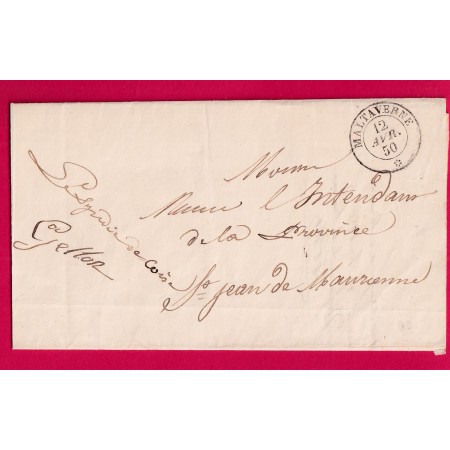 MALTAVERNE
12
AVR.
50
Monsieur
l'Intendant
de la Province
St Jean de Maurienne
Le Syndic de Coise